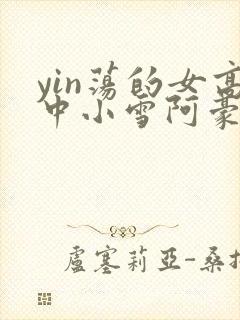 yin蕩的女高
中小雪阿豪
盧塞莉亞-桑托